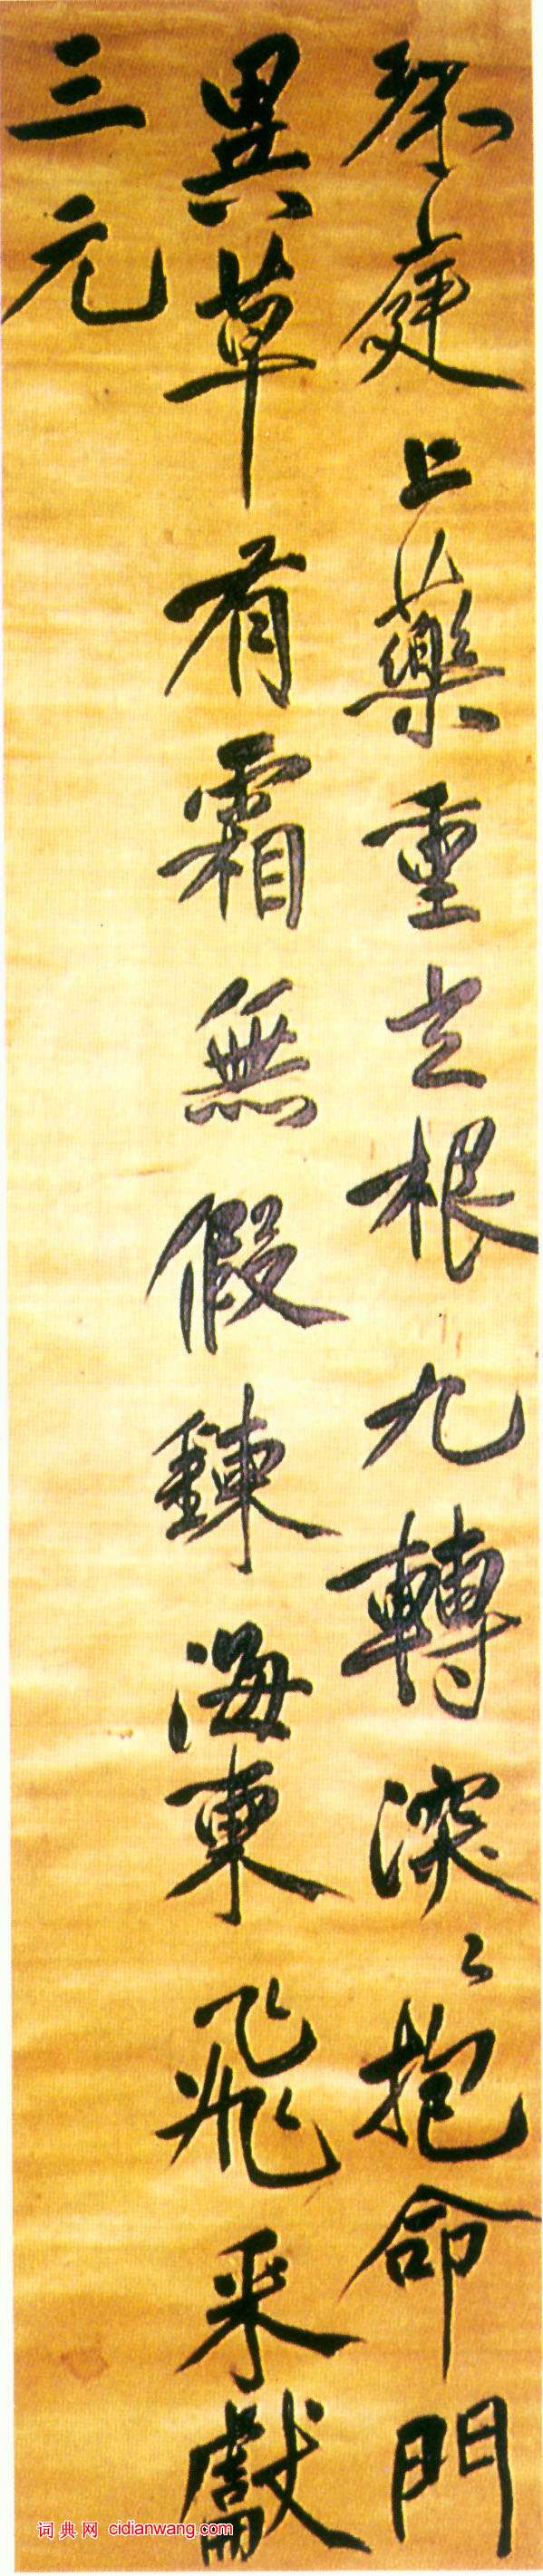 珠庭上藥重玄根九轉深〻抱命門
異草有霜無假鍊海東飛來獻
三元
词典网 cidianwang.com